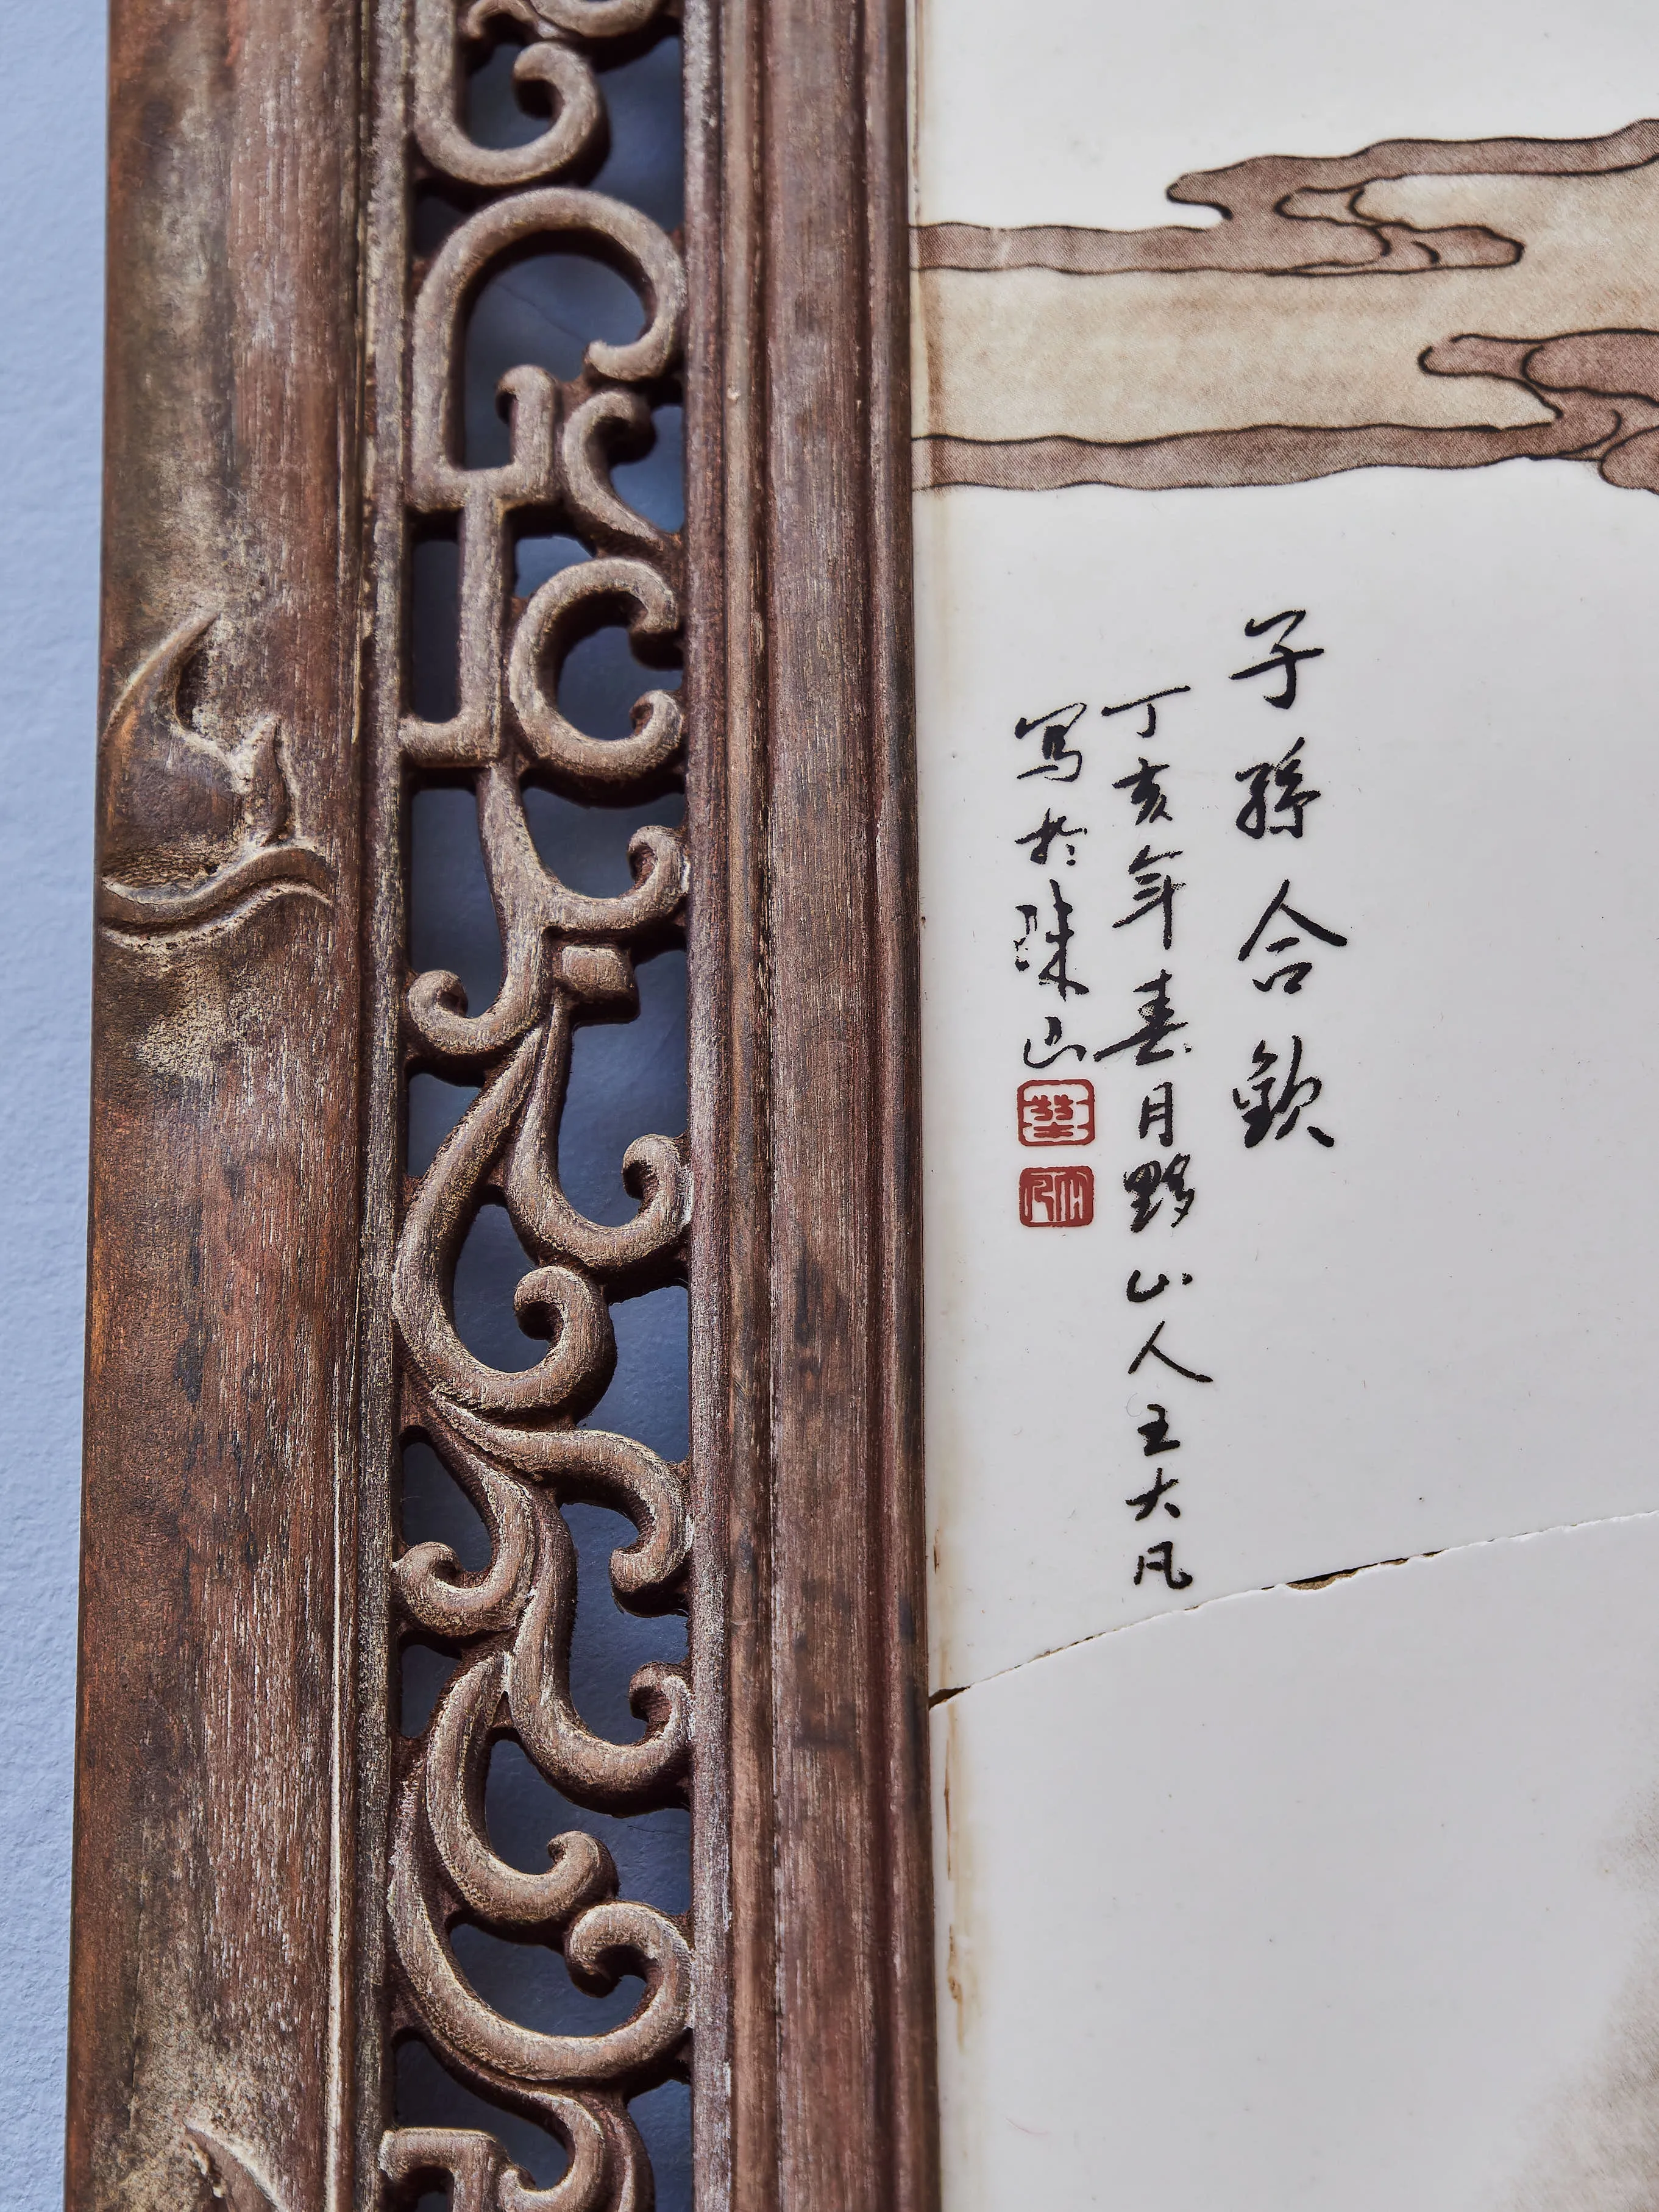 子孫合歡
丁亥年春月黟山人王大凡
写於珠山